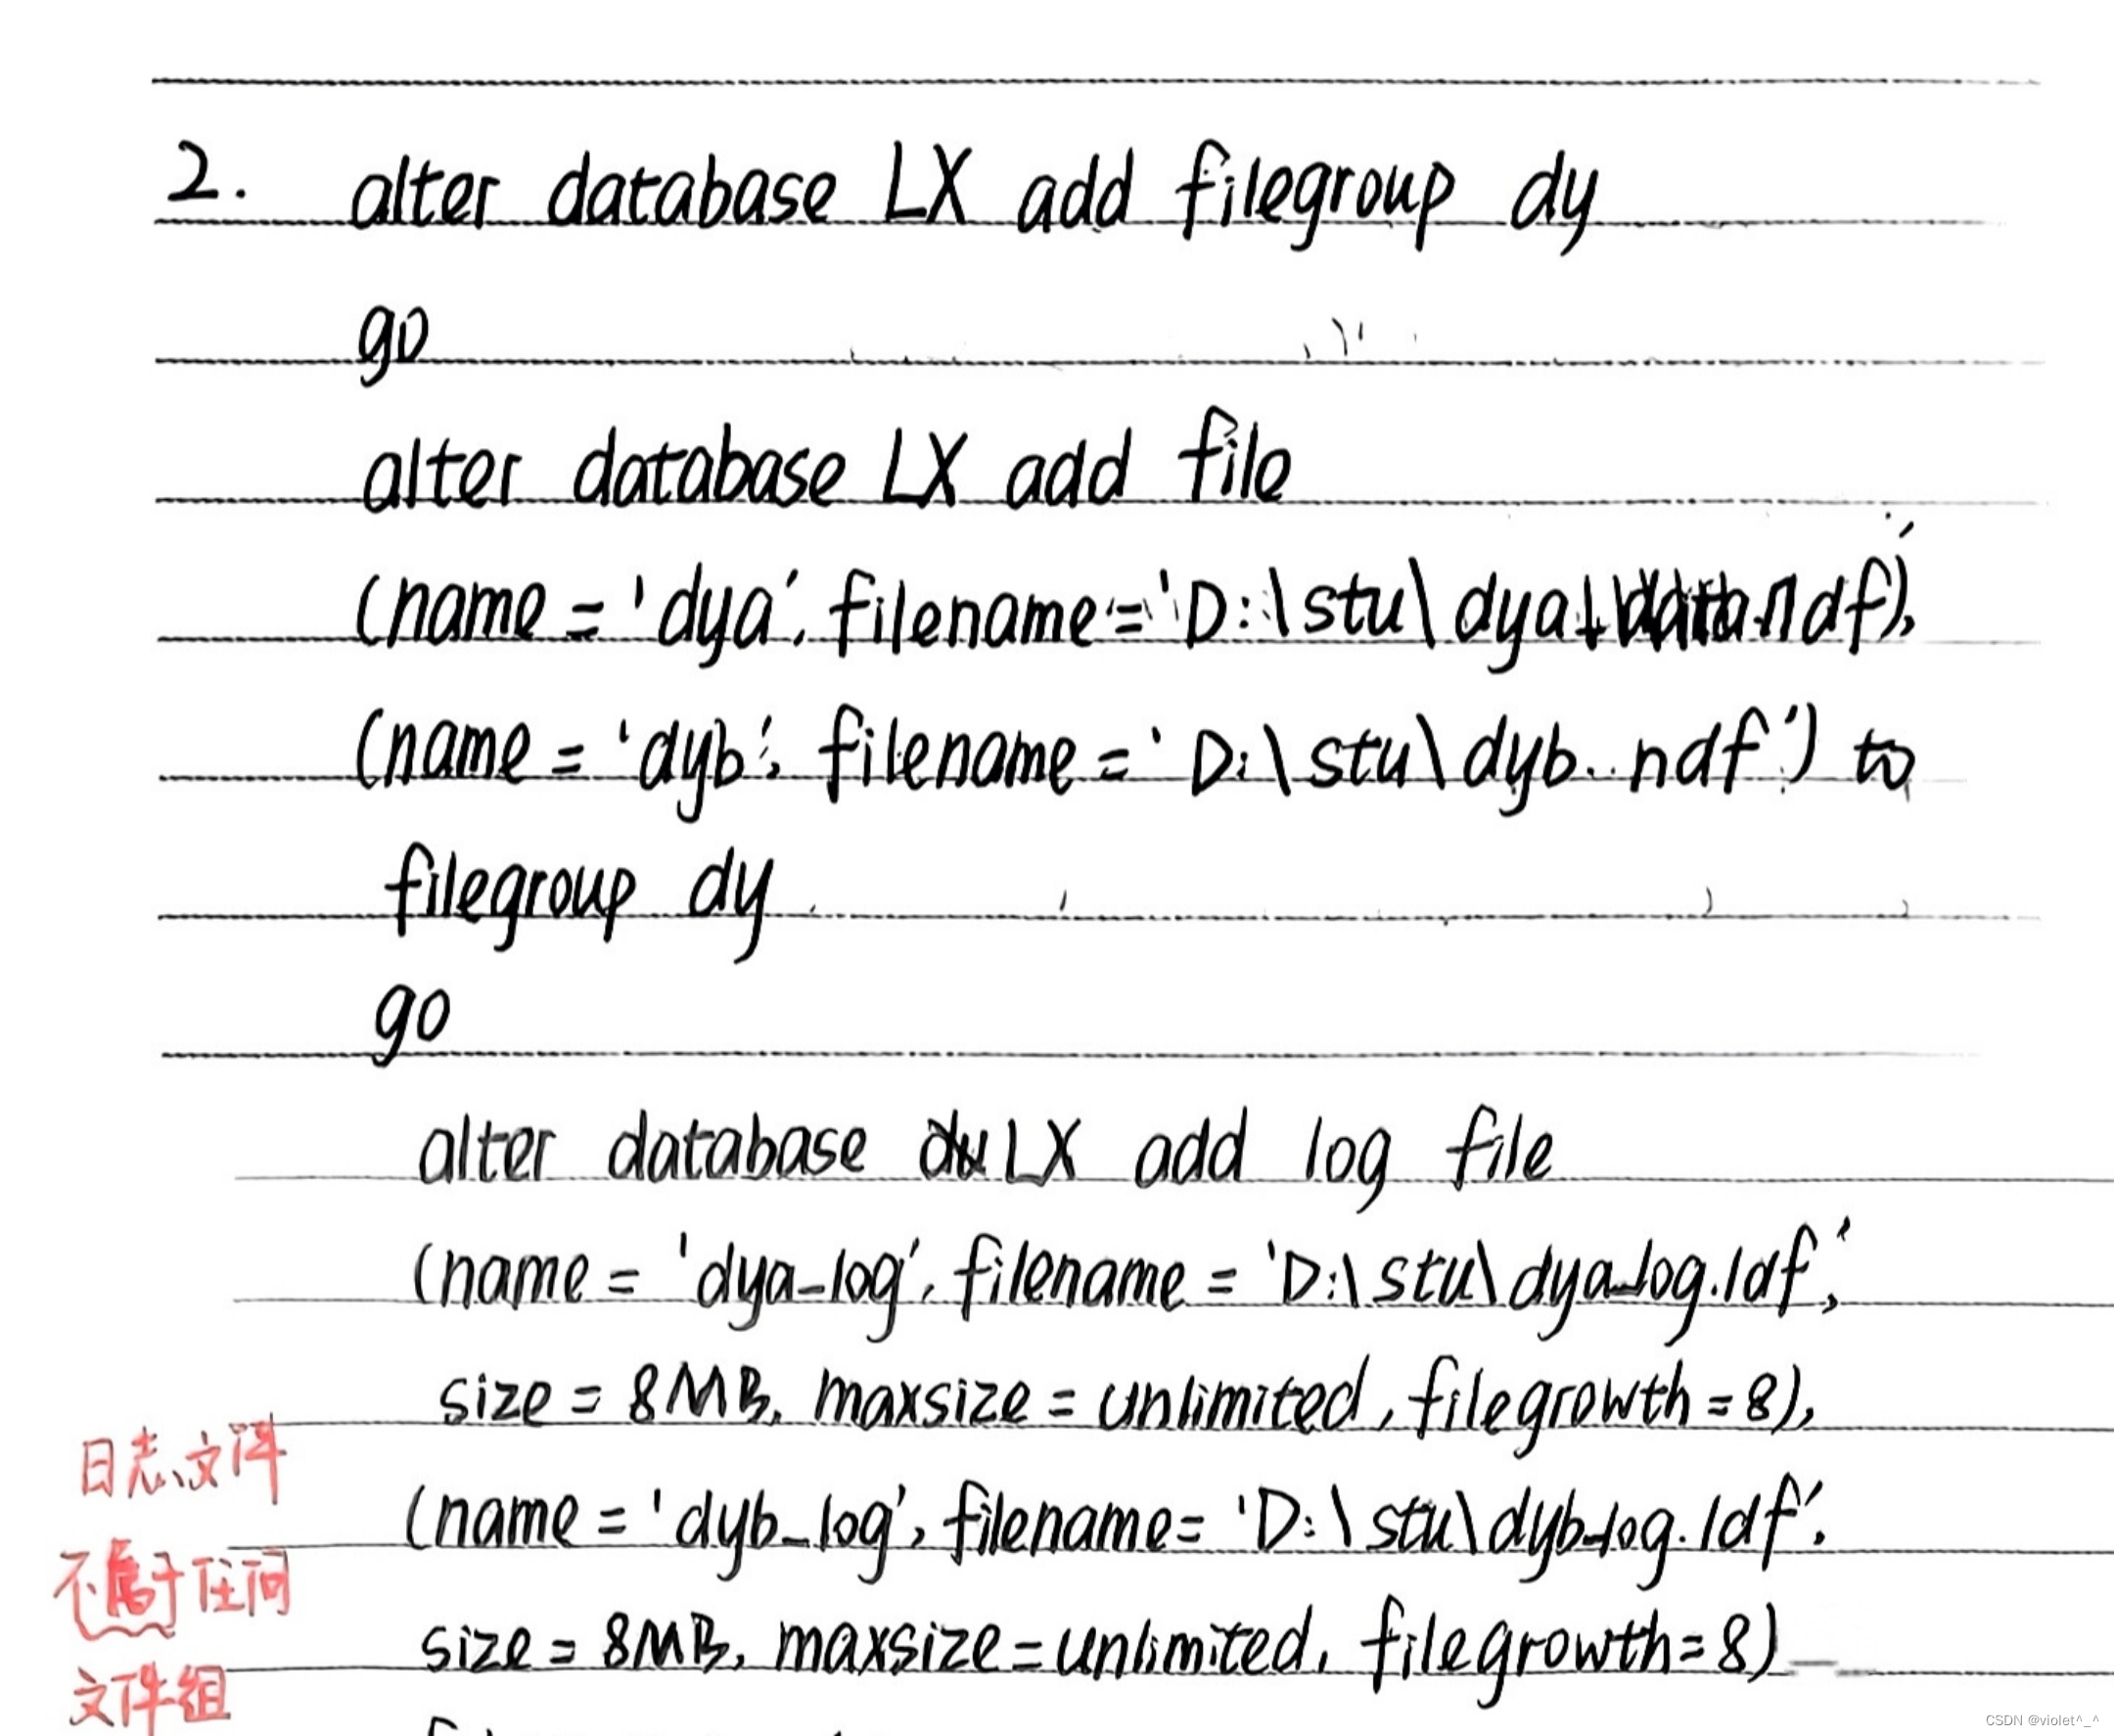 2. alter database LX add filegroup dy
go
alter database LX add file
(name = 'dya', filename='D:\stu\dya.ndf'),
(name = 'dyb', filename = 'D:\stu\dyb.ndf') to
filegroup dy
go
alter database LX add log file
(name = 'dya_log', filename = 'D:\stu\dya_log.ldf',
size = 8MB, maxsize = unlimited, filegrowth = 8),
日志文件
(name = 'dyb_log', filename = 'D:\stu\dyb_log.ldf',
不属于任何
size = 8MB, maxsize = unlimited, filegrowth = 8)
文件组
CSDN @violet^_^